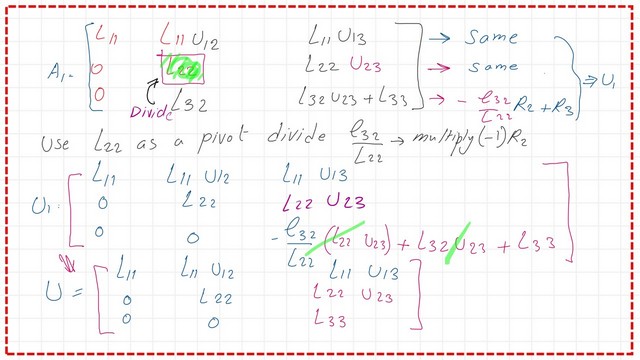 L11 L11 U12 L11 U13 → Same
A1= 0 L22 L22 U23 → Same ⇒ U1
0 L32 L32 U23 + L33 → - l32/L22 R2 + R3
Divide
Use L22 as a pivot divide l32/L22 → multiply (-1) R2
L11 L11 U12 L11 U13
U1= 0 L22 L22 U23
0 0 - l32/L22 (L22 U23) + L32 U23 + L33
L11 L11 U12 L11 U13
U = 0 L22 L22 U23
0 0 L33